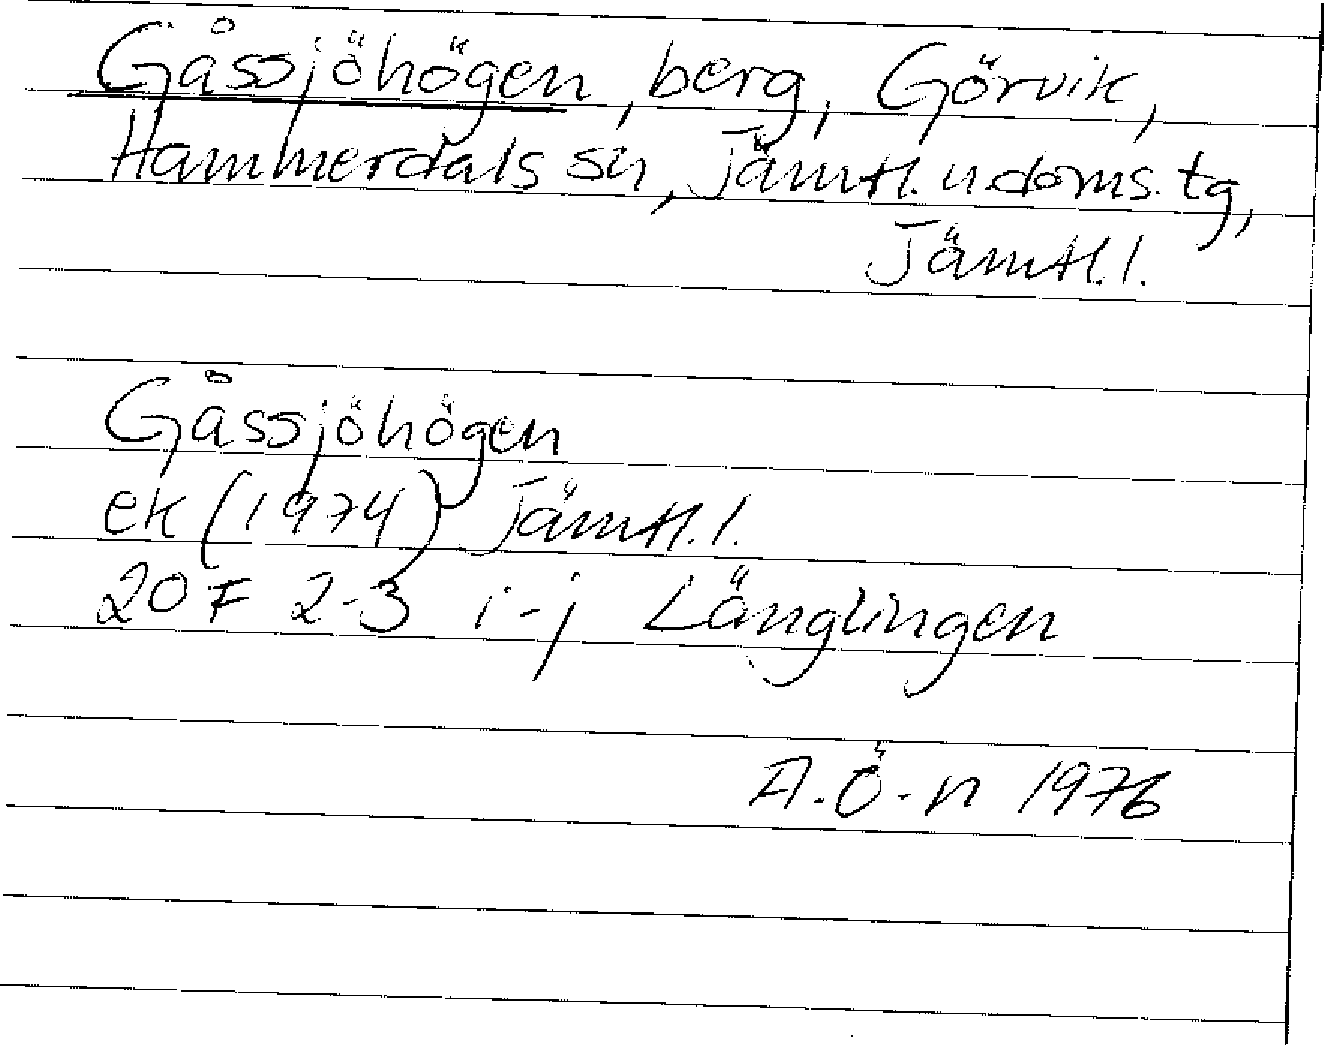 Gåssjöhögen, berg, Görvik,
Hammerdals sn, Jämtl. n.doms. tg,
Jämtl. l.
Gåssjöhögen
ek (1974) Jämtl. l.
20 F 2-3 i-j Länglingen
A.Ö-n 1976